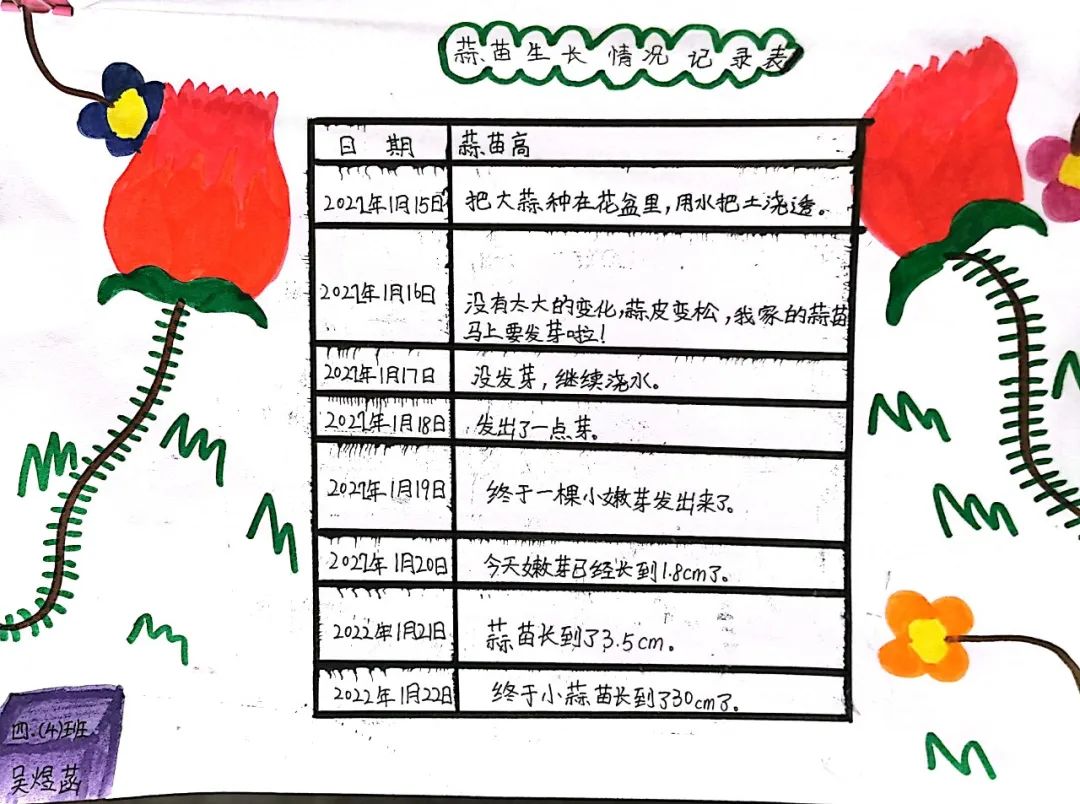 蒜苗生长情况记录表
日 期 蒜苗高
2022年1月15日 把大蒜种在花盆里,用水把土浇透。
2022年1月16日 没有太大的变化,蒜皮变松,我家的蒜苗
马上要发芽啦!
2022年1月17日 没发芽,继续浇水。
2022年1月18日 发出了一点芽。
2022年1月19日 终于一棵小嫩芽发出来了。
2022年1月20日 今天嫩芽已经长到1.8cm了。
2022年1月21日 蒜苗长到了3.5cm。
2022年1月22日 终于小蒜苗长到了30cm了。
四.(4)班.
吴煜菡